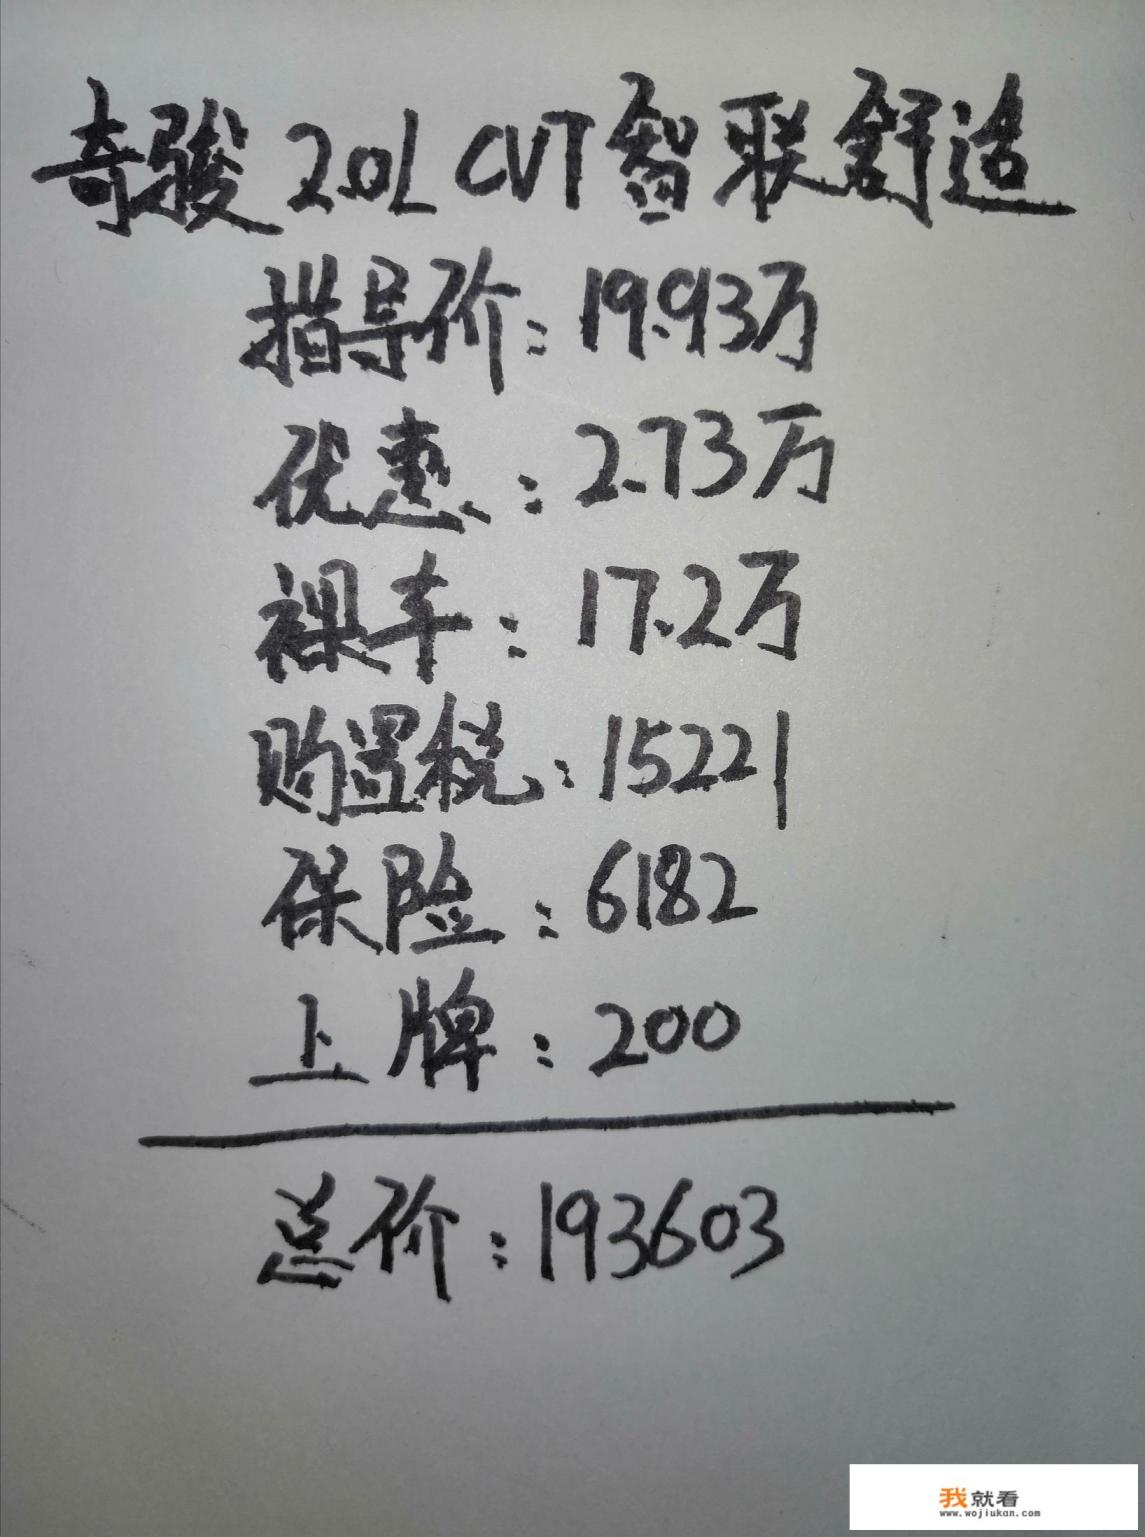 奇骏 2.0L CVT 智联舒适
指导价：19.93万
优惠：2.73万
裸车：17.2万
购置税：15221
保险：6182
上牌：200
总价：193603
我就看
www.wojiukan.com